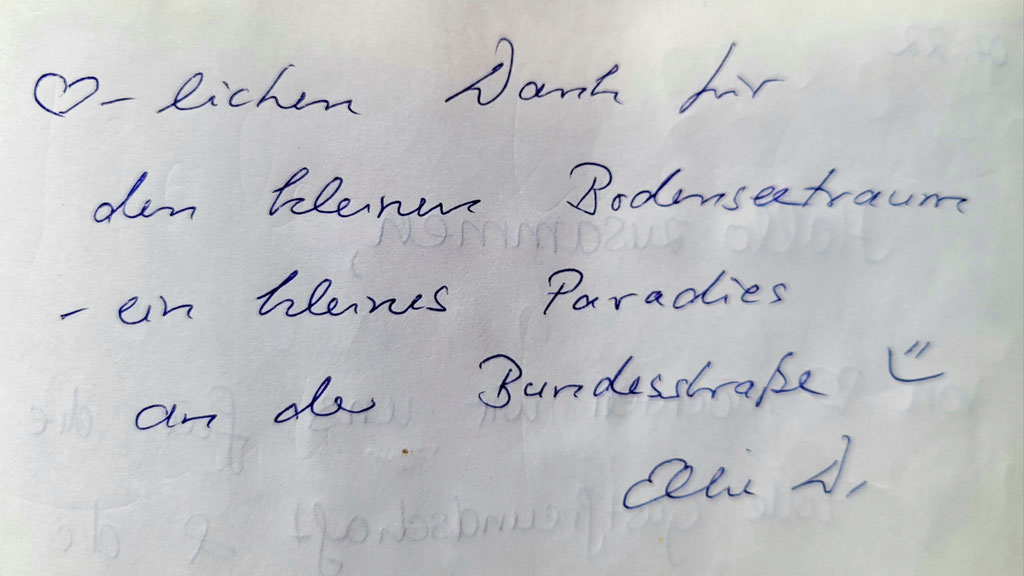 ♡-lichen Dank für
den kleinen Bodenseetraum
- ein kleines Paradies
an der Bundesstraße
D.